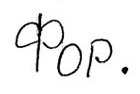 Фор.